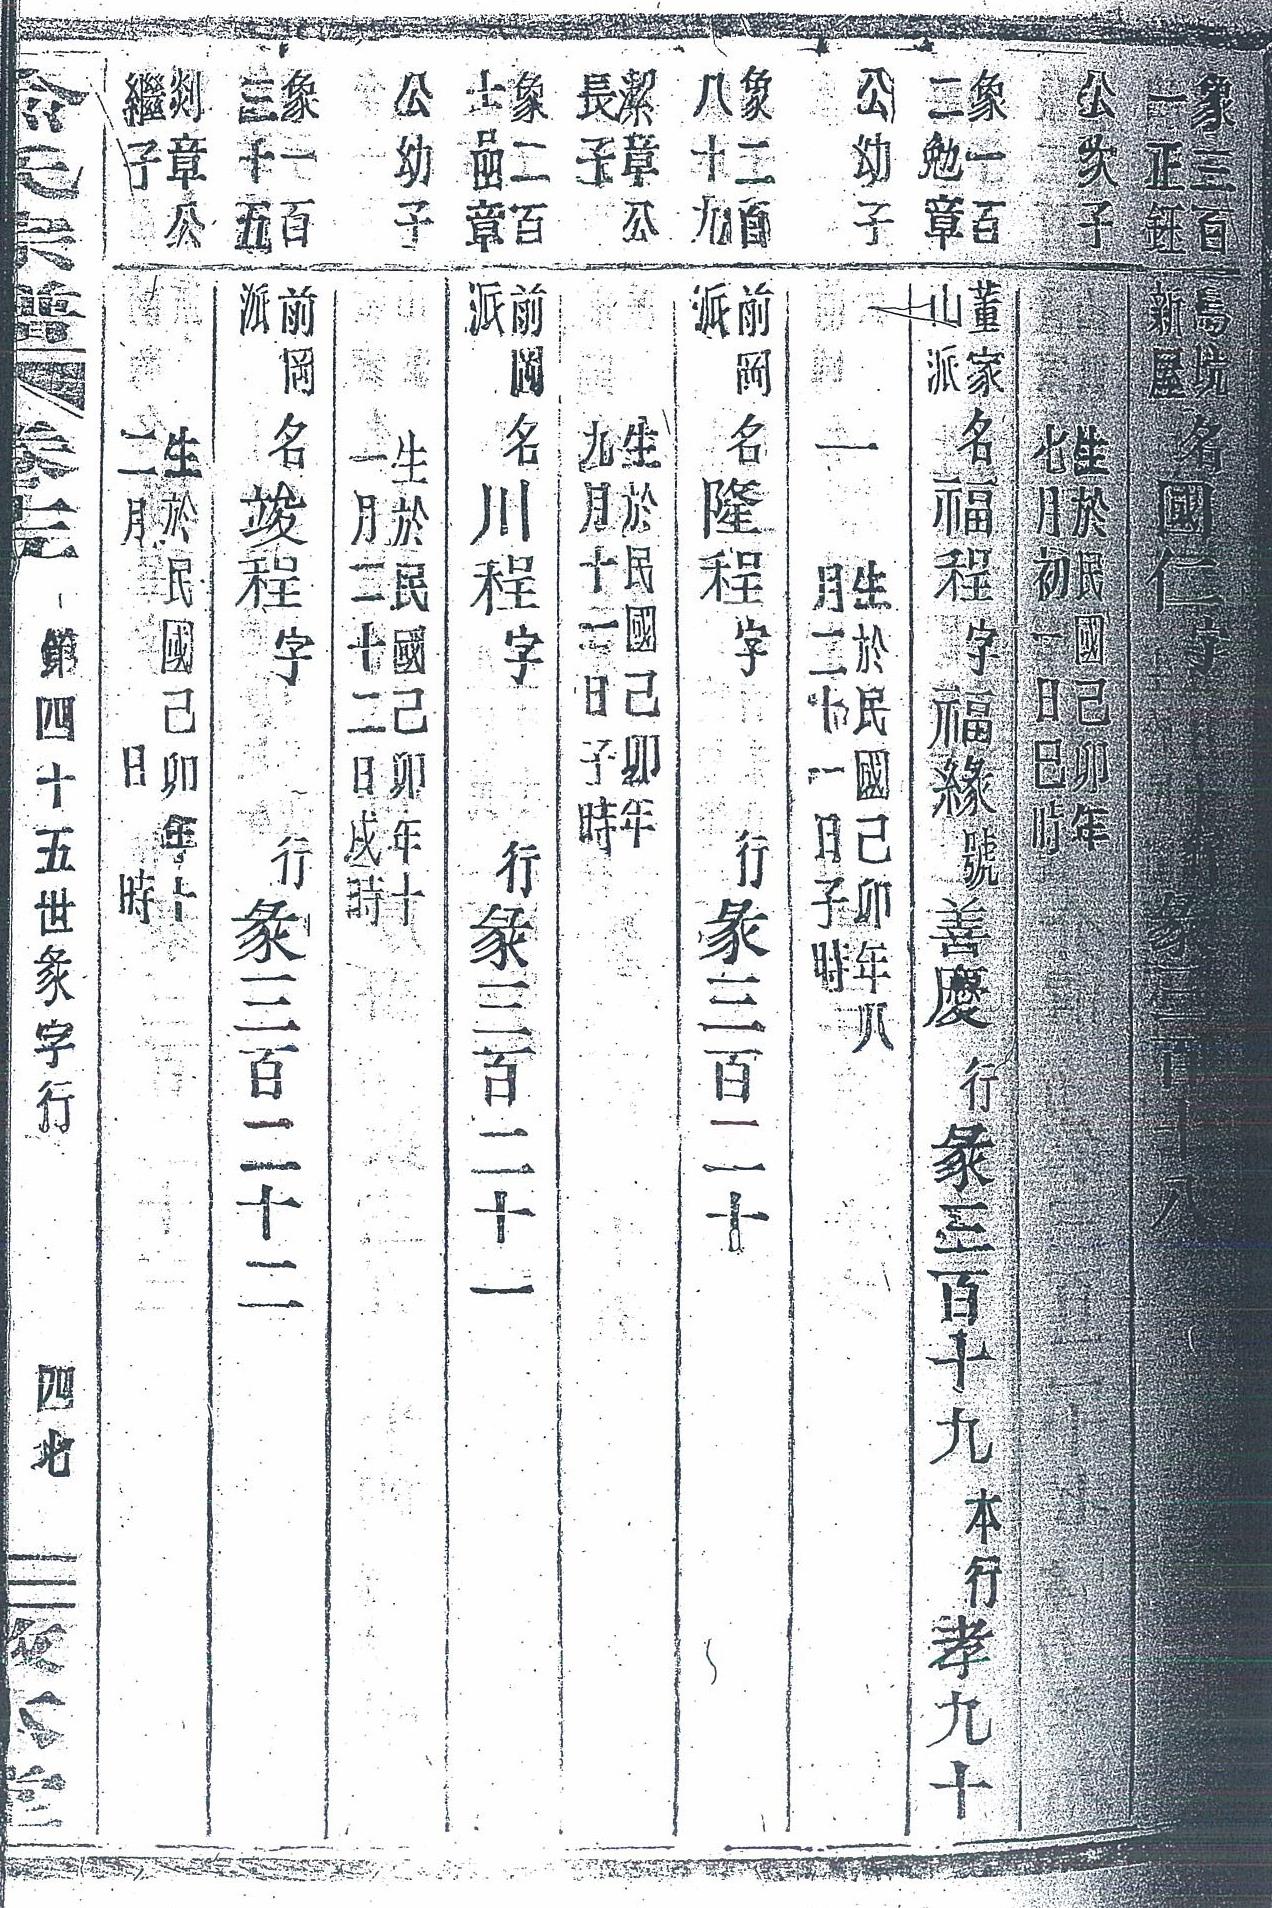 象三百
一正鈺
新屋
名國仁字
彖三百十八
公次子
生於民國己卯年
七月初一日巳時
象一百
二勉章
董家
山派
名福程字福緣號善慶行彖三百十九本行孝九十
公幼子
一
生於民國己卯年八
月二十一日子時
象二百
八十九
前岡
派
名隆程字 行彖三百二十
潔章公
長子
生於民國己卯年
九月十二日子時
象二百
十品章
前岡
派
名川程字 行彖三百二十一
公幼子
生於民國己卯年十
一月二十二日戌時
象一百
三十五
前岡
派
名竣程字 行彖三百二十二
剡章公
繼子
生於民國己卯年十
二月 日 時
宗譜 卷 第四十五世彖字行 四七 堂